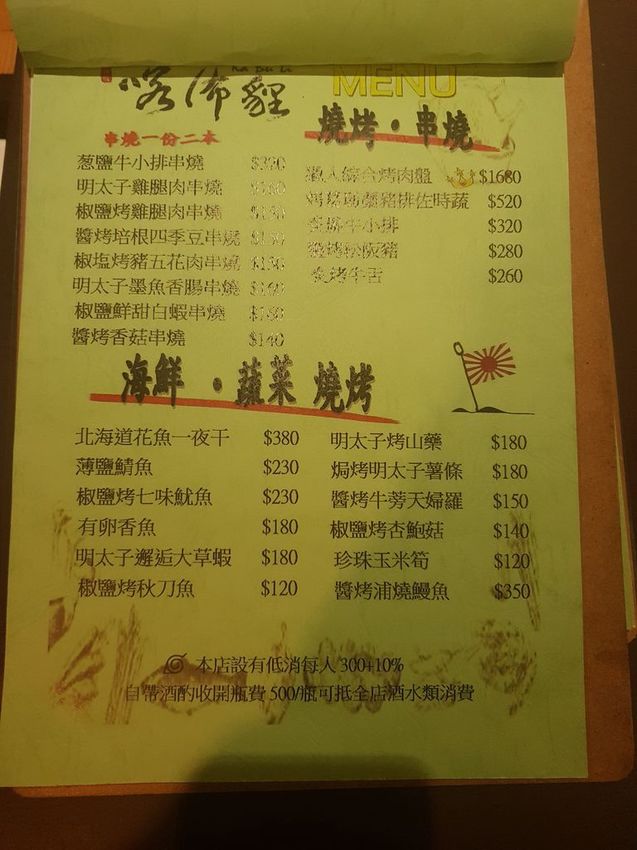 喀佈貍
MENU
燒烤・串燒
串燒一份二本
葱鹽牛小排串燒 $320
明太子雞腿肉串燒
椒鹽烤雞腿肉串燒
醬烤培根四季豆串燒
椒塩烤豬五花肉串燒 $130
明太子墨魚香腸串燒 $160
椒鹽鮮甜白蝦串燒 $160
醬烤香菇串燒 $140
綜合烤肉盤 $1680
豬排佐時蔬 $520
牛小排 $320
烤松阪豬 $280
炙烤牛舌 $260
海鮮・蔬菜 燒烤
北海道花魚一夜干 $380
薄鹽鯖魚 $230
椒鹽烤七味魷魚 $230
有卵香魚 $180
明太子邂逅大草蝦 $180
椒鹽烤秋刀魚 $120
明太子烤山藥 $180
焗烤明太子薯條 $180
醬烤牛蒡天婦羅 $150
椒鹽烤杏鮑菇 $140
珍珠玉米筍 $120
醬烤浦燒鰻魚 $350
本店設有低消每人 300+10%
自帶酒酌收開瓶費 500/瓶可抵全店酒水類消費